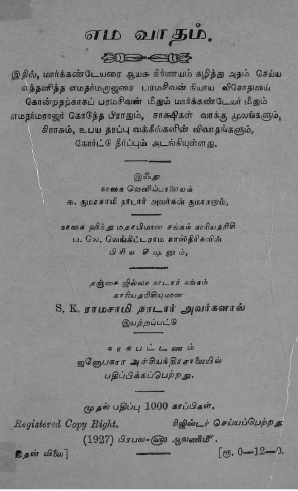 எம வாதம்.
இதில், மார்க்கண்டேயரை ஆயசு நிர்ணயம் கழித்து அதம் செய்ய
எத்தனித்த எமதர்மராஜரை பரமசிவன் நியாய விரோதமாய்
கொன்றதற்காகப் பரமசிவன் மீதும் மார்க்கண்டேயர் மீதும்
எமதர்மராஜர் கொடுத்த பிராதும், சாக்ஷிகள் வாக்கு மூலங்களும்,
கிராசும், உபய தரப்பு வக்கீல்களின் விவாதங்களும்,
கோர்ட்டு தீர்ப்பும் அடங்கியுள்ளது.
இஃது
நாகை வெளிப்பாளையம்
சு. குமரசாமி நாடார் அவர்கள் குமாரனும்,
நாகை ஹிந்து மதாபிமான சங்கம் காரியதரிசி
ப. லெ. வெங்கிட்டராம சாஸ்திரிகளின்
பிரிய ஷனும்,
தஞ்சை ஜில்லா நாடார் சங்கம்
காரியதரிசியுமான
S. K. ராமசாமி நாடார் அவர்களால்
இயற்றப்பட்டு
நாகபட்டணம்
ஜனோபகார அச்சியந்திரசாலையில்
பதிப்பிக்கப்பெற்றது.
முதல் பதிப்பு 1000 காப்பிகள்.
Registered Copy Right. ரிஜிஸ்டர் செய்யப்பெற்றது
(1927) பிரபவ ஆவணிமீ
இதன் விலை] [ரூ. 0—12—0.